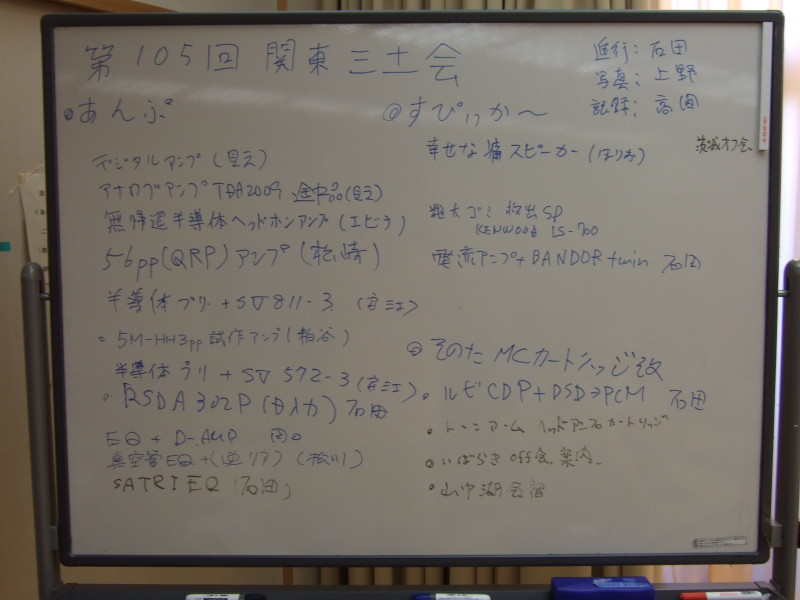 第105回 関東三土会
進行: 石田
写真: 上野
記録: 高
◎あんぷ
デジタルアンプ(見え)
アナログアンプTDA2009 途中品(見え)
無帰還半導体ヘッドホンアンプ(エビラ)
56pp(QRP)アンプ(松崎)
半導体プリ + SV811-3 (安三江)
・5M-HH3pp 試作アンプ(粕谷)
半導体プリ + SV572-3 (安三江)
・RSDA302P 石田
EQ + D-AMP
真空管EQ+(逆リア) (松川)
SATRI EQ (石田)
◎すぴいかー
茨城オフ会
幸せな箱スピーカー (ほりお)
粗大ゴミ 救出SP
KENWOOD LS-700
電流アンプ+BANDOR twin 石田
◎そのた MCカートリッジ改
・ルビCDP+DSD→PCM 石田
・トーンアーム ヘッドアンプカートリッジ
・いばらき off会 案内
・山中湖合宿